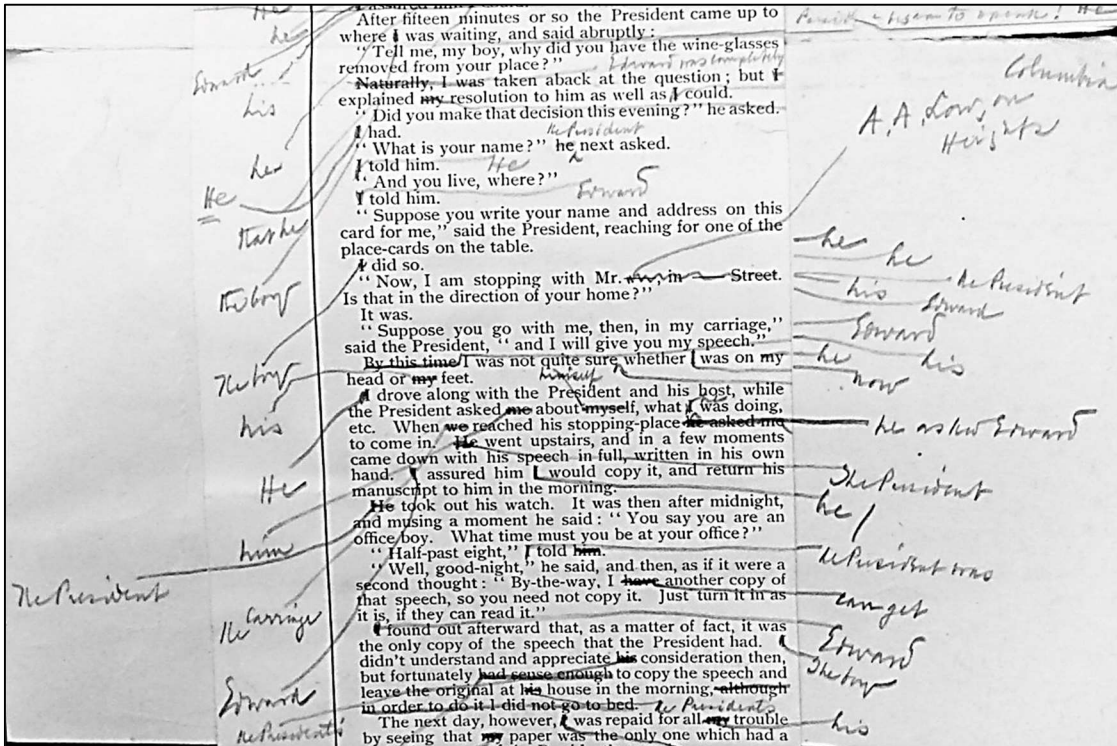 He
he
Edward
his
her
He
that he
the boy
The boy
his
He
him
The President
The Carriage
Edward
The President's
assured him
After fifteen minutes or so the President came up to
where I was waiting, and said abruptly:
"Tell me, my boy, why did you have the wine-glasses
removed from your place?" Edward was completely
Naturally, I was taken aback at the question; but I
explained my resolution to him as well as I could.
"Did you make that decision this evening?" he asked.
I had.
the President
"What is your name?" he next asked.
I told him. He
"And you live, where?"
I told him. Edward
"Suppose you write your name and address on this
card for me," said the President, reaching for one of the
place-cards on the table.
I did so.
"Now, I am stopping with Mr. ——, in —— Street.
Is that in the direction of your home?"
It was.
"Suppose you go with me, then, in my carriage,"
said the President, "and I will give you my speech."
By this time I was not quite sure whether I was on my
head or my feet.
himself
I drove along with the President and his host, while
the President asked me about myself, what I was doing,
etc. When we reached his stopping-place he asked me
to come in. He went upstairs, and in a few moments
came down with his speech in full, written in his own
hand. I assured him I would copy it, and return his
manuscript to him in the morning.
He took out his watch. It was then after midnight,
and musing a moment he said: "You say you are an
office boy. What time must you be at your office?"
"Half-past eight," I told him.
"Well, good-night," he said, and then, as if it were a
second thought: "By-the-way, I have another copy of
that speech, so you need not copy it. Just turn it in as
it is, if they can read it."
I found out afterward that, as a matter of fact, it was
the only copy of the speech that the President had. I
didn't understand and appreciate his consideration then,
but fortunately had sense enough to copy the speech and
leave the original at his house in the morning, although
in order to do it I did not go to bed. the President's
The next day, however, I was repaid for all my trouble
by seeing that my paper was the only one which had a
Columbia
A. A. Low, on
Heights
he
he
the President
his
Edward
Edward
he
his
now
he asked Edward
The President
he
the President was
can get
Edward
The boy
his